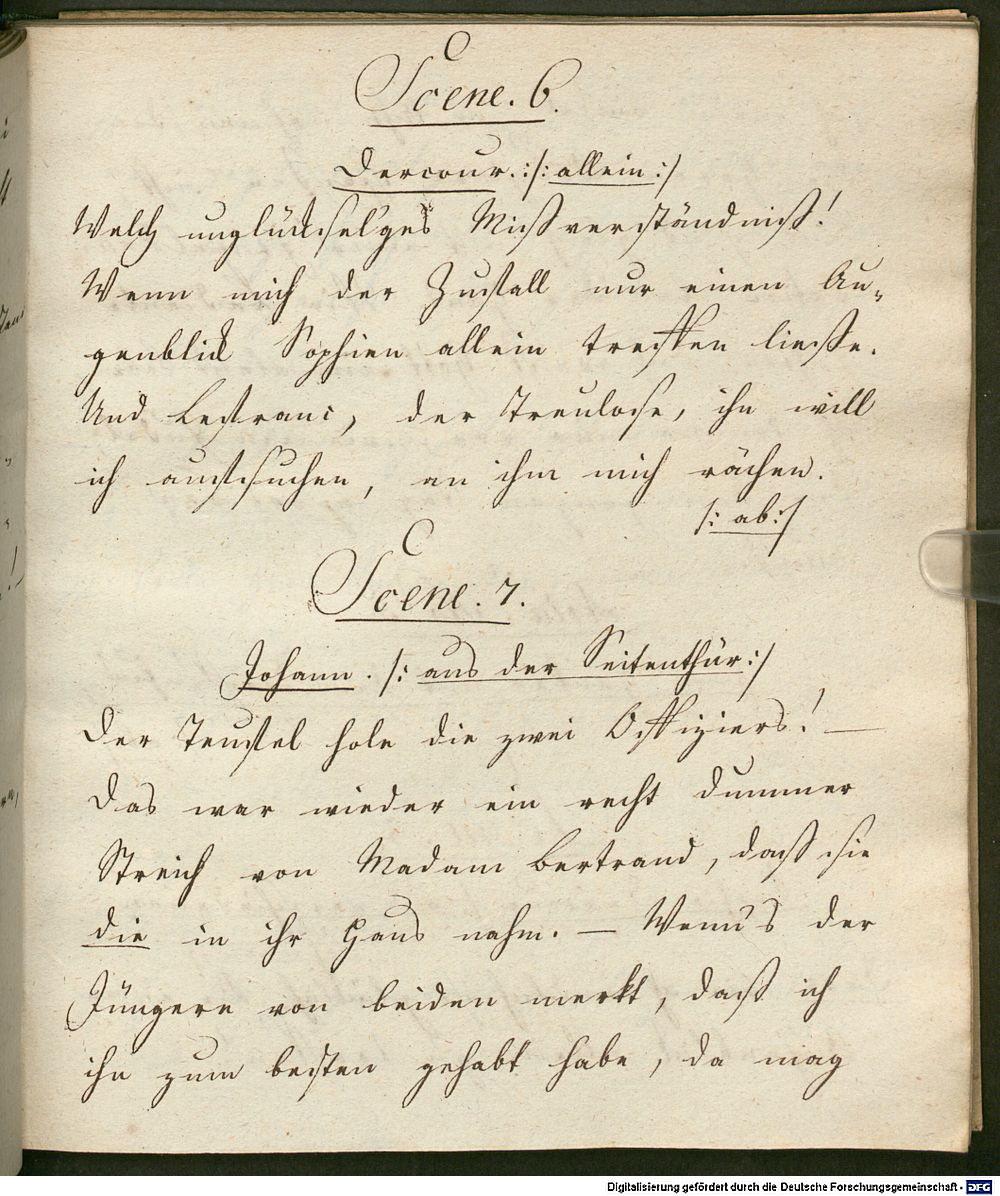 Scene. 6.
Dercour. :/: allein :/
Welch unglücksel'ges Mißverständniß!
Wenn mich der Zufall nur einen Au-
genblick Sophien allein treffen ließe.
Und Lestranc, der Treulose, ihn will
ich aufsuchen, an ihm mich rächen.
/: ab :/
Scene. 7.
Johann. /: aus der Seitenthür :/
Der Teufel hole die zwei Offiziers! —
Das war wieder ein recht dummer
Streich von Madam Bertrand, daß sie
die in ihr Haus nahm. — Wenn's der
Jüngere von beiden merkt, daß ich
ihn zum besten gehabt habe, da mag
Digitalisierung gefördert durch die Deutsche Forschungsgemeinschaft - DFG